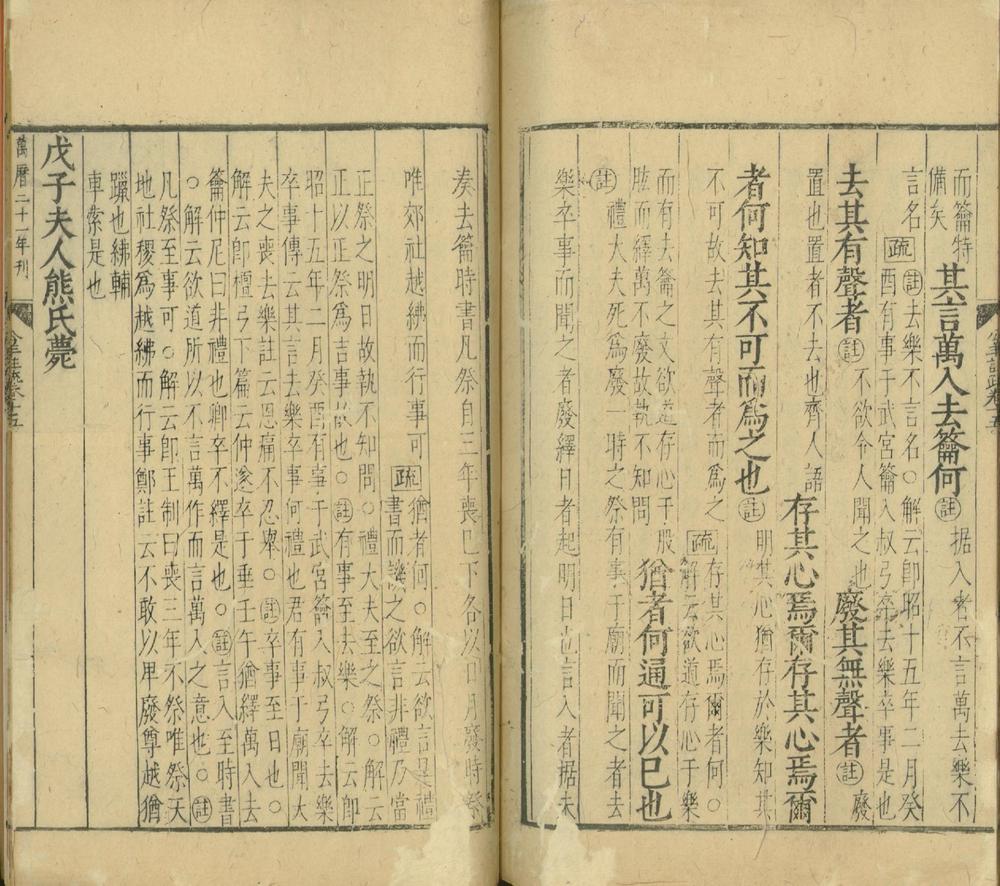 公羊註疏卷十五
而籥特
備矣
其言萬入去籥何
註据入者不言萬去樂不
言名
疏註去樂不言名○解云即昭十五年二月癸
酉有事于武宮籥入叔弓卒去樂卒事是也
去其有聲者註不欲令人聞之也廢其無聲者註廢
置也置者不去也齊人語存其心焉爾存其心焉爾
者何知其不可而爲之也註明其心猶存於樂知其
不可故去其有聲者而爲之
疏存其心焉爾者何○
解云欲道存心于樂
而有去籥之文欲道存心于股
肱而繹萬不廢故執不知問
猶者何通可以已也
註禮大夫死爲廢一時之祭有事于廟而聞之者去
樂卒事而聞之者廢繹日者起明日也言入者据未
奏去籥時書凡祭自三年喪已下各以日月廢時祭
唯郊社越紼而行事可
疏猶者何○解云欲言是禮
書而譏之欲言非禮乃當
正祭之明日故執不知問○禮大夫至之祭○解云
正以正祭爲吉事故也○註有事至去樂○解云即
昭十五年二月癸酉有事于武宮籥入叔弓卒去樂
卒事傳云其言去樂卒事何禮也君有事于廟聞大
夫之喪去樂註云恩痛不忍舉○註卒事至日也○
解云即檀弓下篇云仲遂卒于垂壬午猶繹萬入去
籥仲尼曰非禮也卿卒不繹是也○註言入至時書
○解云欲道所以不言萬作而言萬入之意也○註
凡祭至事可○解云即王制曰喪三年不祭唯祭天
地社稷爲越紼而行事鄭註云不敢以卑廢尊越猶
躐也紼輔
車索是也
戊子夫人熊氏薨
萬曆二十一年刊
公羊註疏卷十五